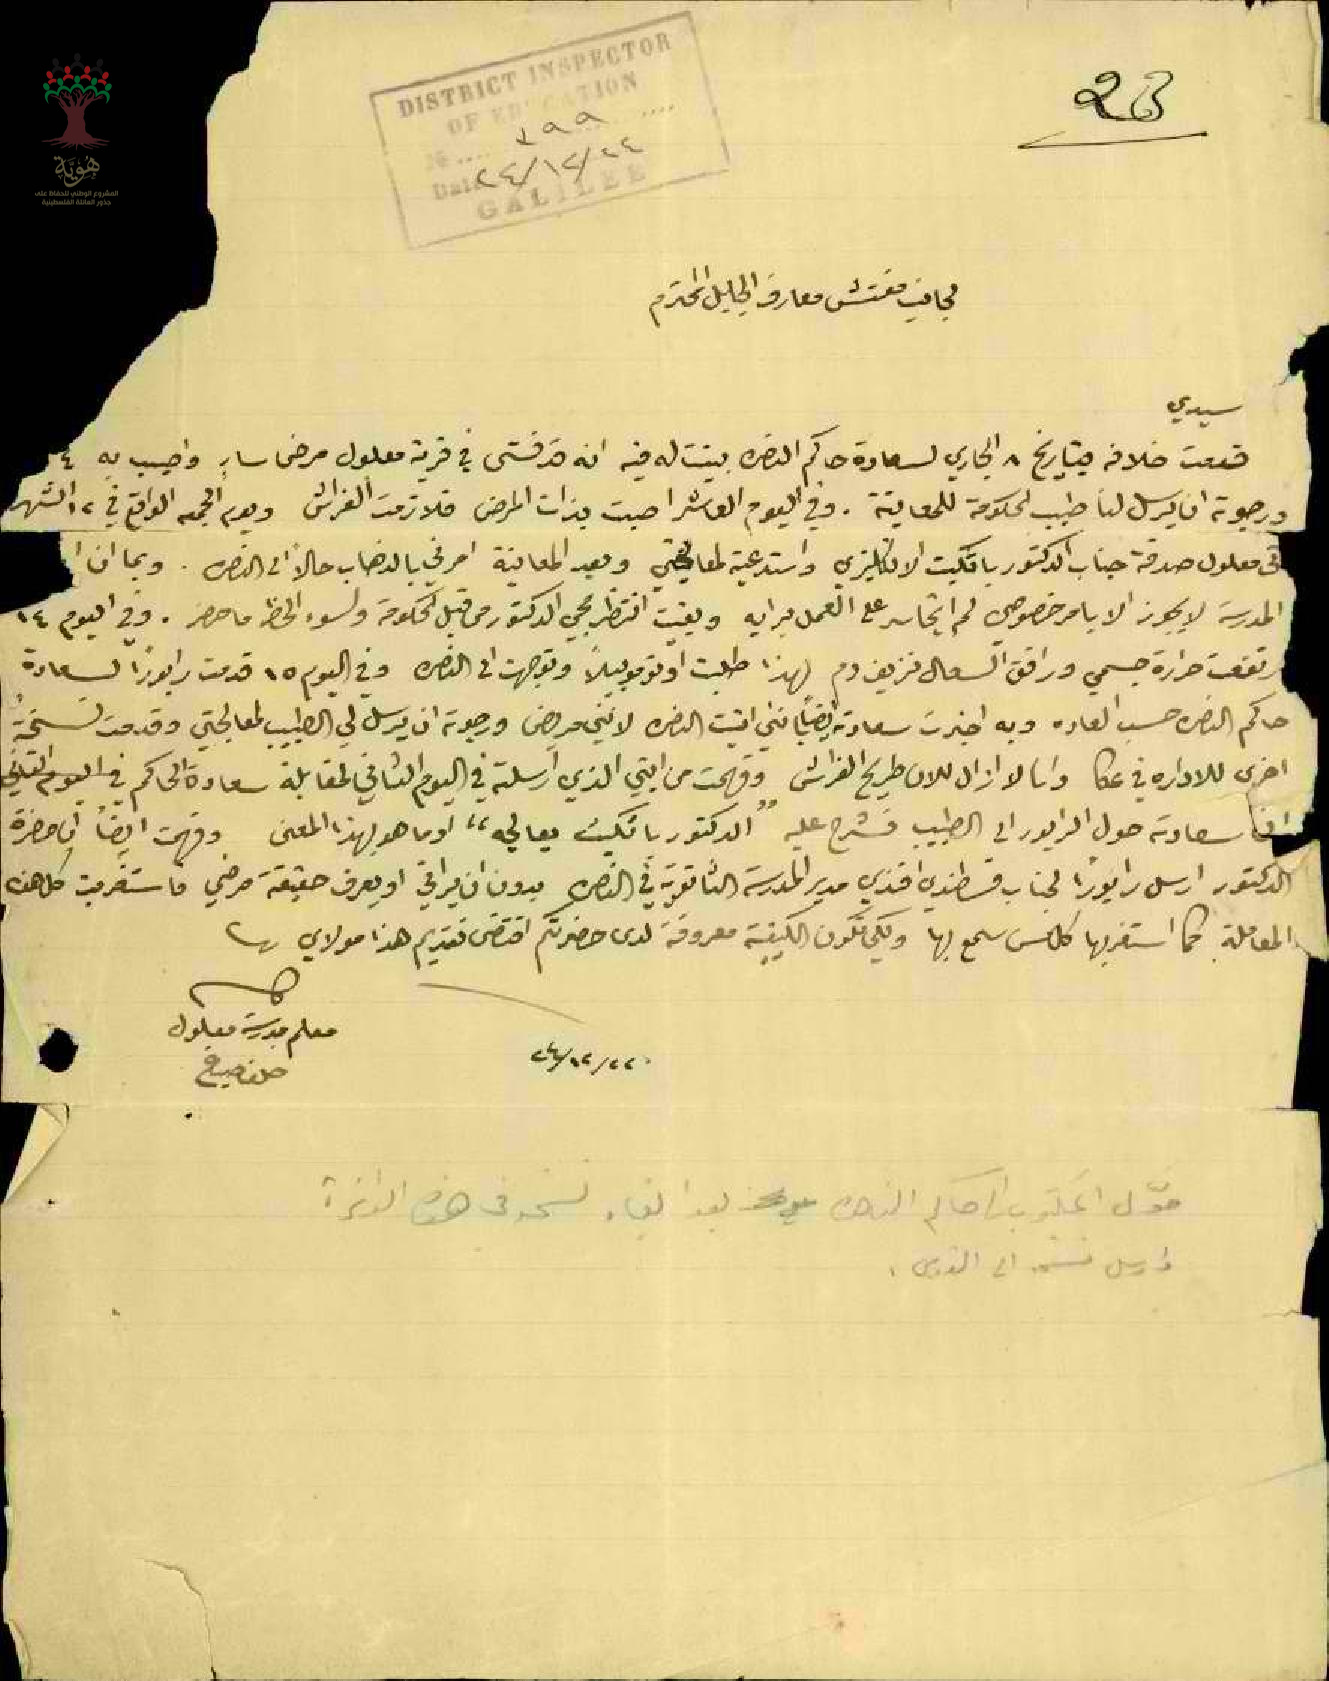 هُويَّة
المشروع الوطني للحفاظ على
جذور العائلة الفلسطينية
DISTRICT INSPECTOR
OF EDUCATION
No .... ١٩٩ ....
Date ٢٤/١٢/٢٤
GALILEE
23
لجانب مفتش معارف الجليل المحترم
سيدي
قدمت خلافه بتاريخ ٨ الجاري لسعادة حاكم الناصره بينت له فيه انه قد فشى في قرية معلول مرض سارٍ واصيب به
ورجوته ان يرسل لنا طبيب الحكومة للمعاينة . وفي اليوم العاشر اصبت بذات المرض فلازمت الفراش ويوم الجمعه الواقع في ١٢ الشهر
في معلول صدفة جناب الدكتور باتكيت الانكليزي واستدعيته لمعالجتي وبعد المعاينة امرني بالذهاب حالاً الى الناصره . وبما ان ا
المدرسة لا يجوز الا بامر خصوصي لم اتجاسر على العمل برايه وبقيت انتظر مجي الدكتور من قبل الحكومة ولسوء الحظ ما حضر . وفي اليوم ١٤
رتفعت حرارة جسمي ورافق السعال نزيف دم لهذا طلبت اوتوموبيلاً وتوجهت الى الناصره وفي اليوم ١٥ قدمت رابورًا لسعادة
حاكم الناصره حسب العاده وبه اخبرت سعادته ايضًا بانني اتيت الناصره لانني مريض ورجوته ان يرسل لي الطبيب لمعالجتي وقدمت نسخةً
اخرى للاداره في عكا وانا لا ازال للان طريح الفراش وفهمت من ابني الذي ارسلته في اليوم الثاني لمقابلة سعادة الحاكم في اليوم الثاني
ان سعادته حول الرابور الى الطبيب فشرح عليه "الدكتور باتكيت يعالجه" او ما هو بهذا المعنى وفهمت ايضًا ان حضرة
الدكتور ارسل رابورًا لجناب قسطندي افندي مدير المدرسة الثانوية في الناصره بدون ان يراني او يعرف حقيقة مرضي فاستغربت كل هذه
المعاملة كما استغربها كل من سمع بها ولكي تكون الكيفية معروفة لدى حضرتكم اقتضى تقديم هذا مولاي
معلم مدرسة معلول
٢٤/١٢/٢٢
حوّل المكتوب الى حاكم الناصره بعد ابقاء نسخه في هذه الدائرة
وارسل نسخه الى القدس .